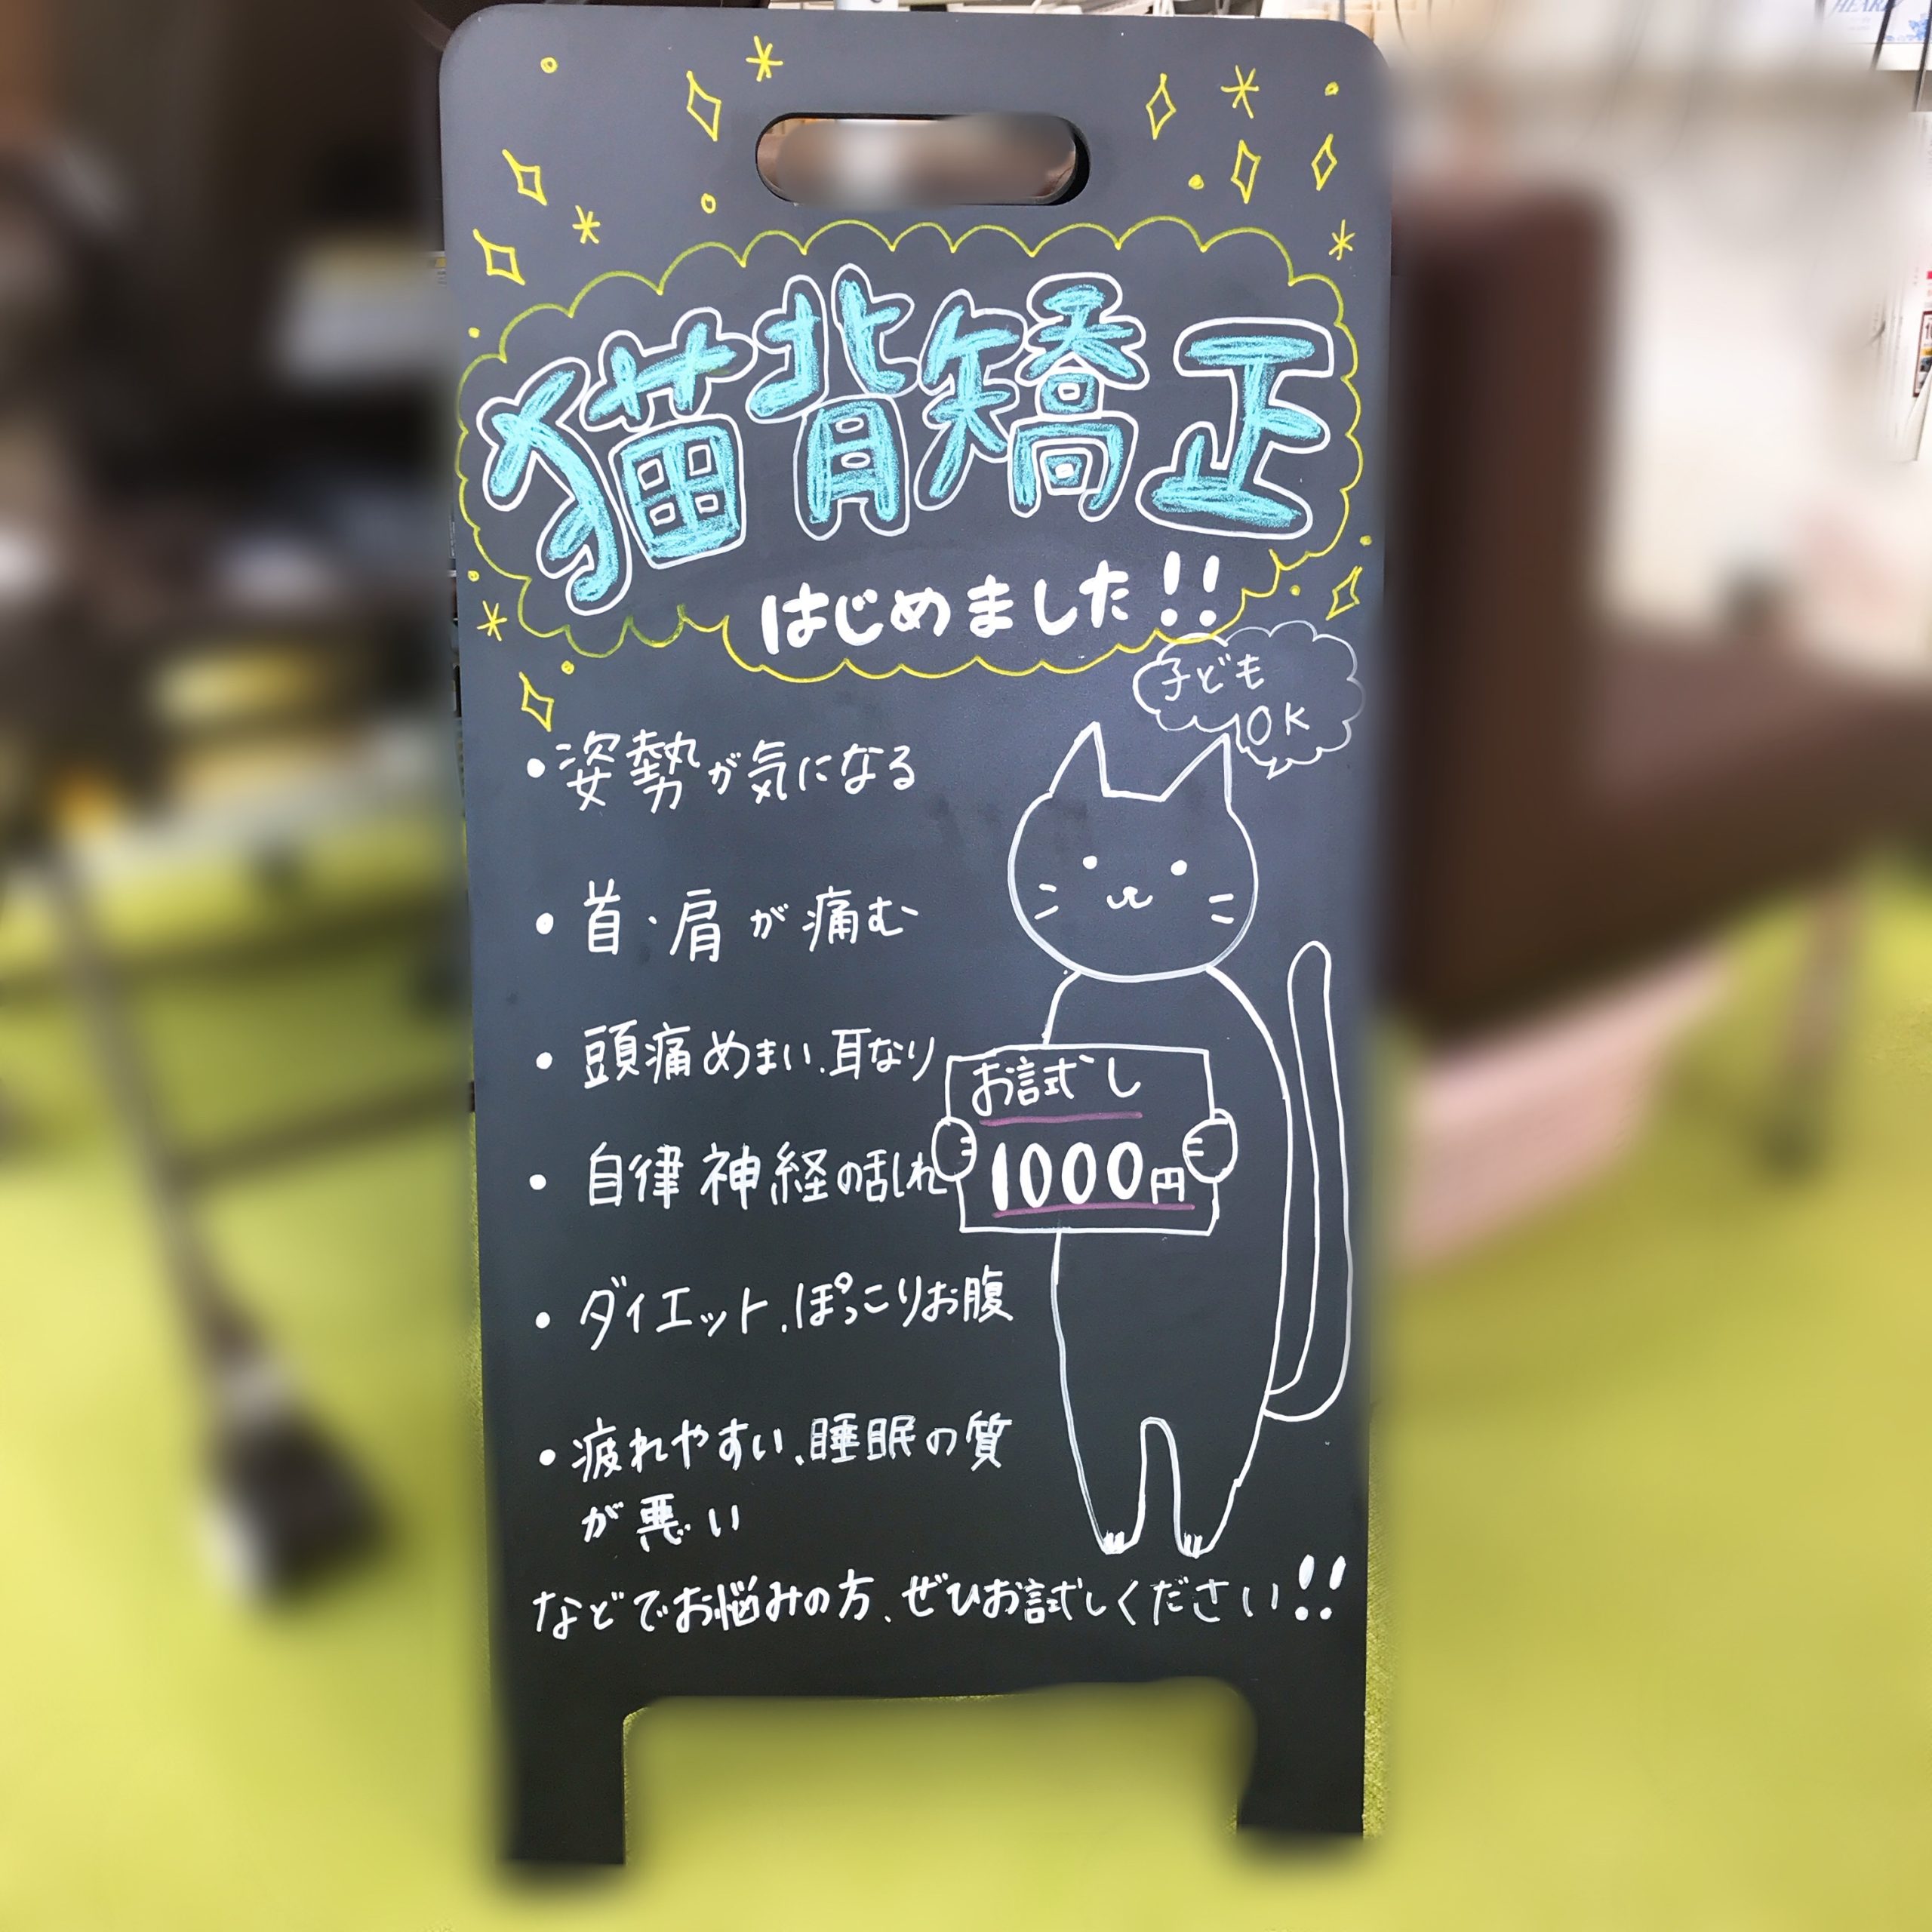 猫背矯正
はじめました!!
子ども
OK
・姿勢が気になる
・首・肩が痛む
・頭痛めまい、耳なり
・自律神経の乱れ
お試し
1000円
・ダイエット、ぽっこりお腹
・疲れやすい、睡眠の質
が悪い
などでお悩みの方、ぜひお試しください!!